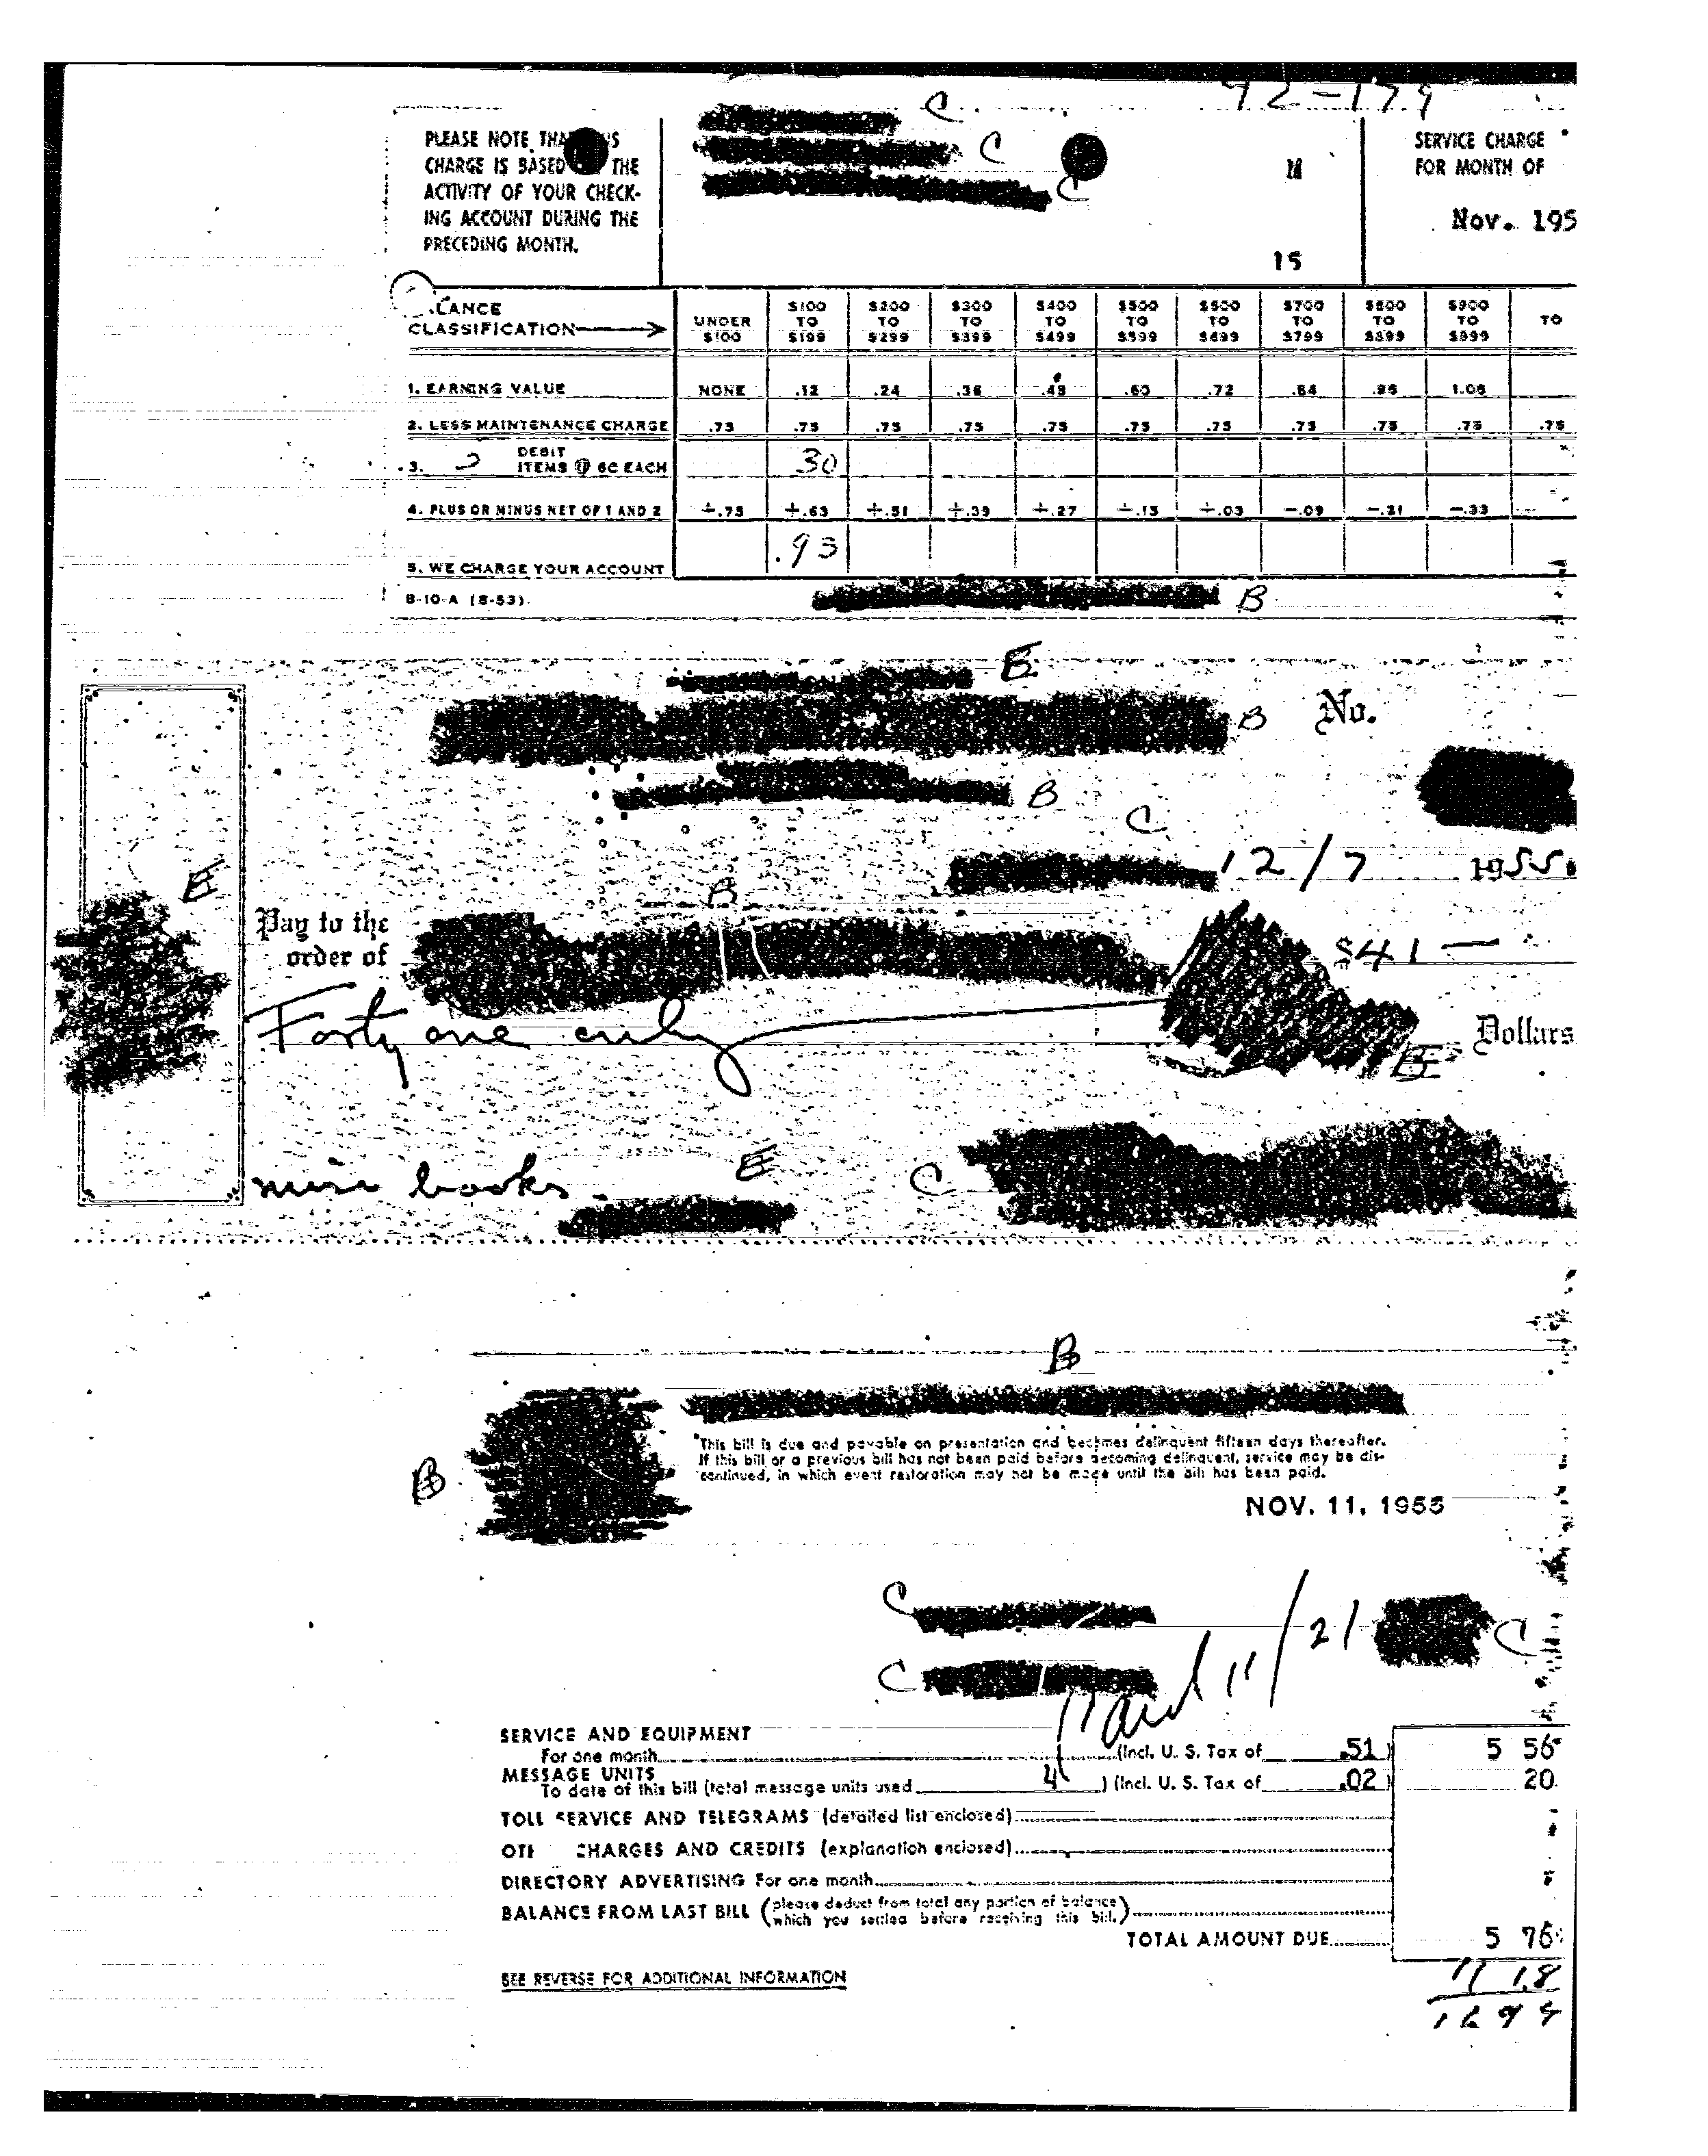 42-179
C
PLEASE NOTE
CHARGE IS BASED THE
ACTIVITY OF YOUR CHECK-
ING ACCOUNT DURING THE
PRECEDING MONTH.
C
C
15
SERVICE CHARGE
FOR MONTH OF
Nov. 195
LANCE
CLASSIFICATION
UNDER $100 $100 TO $199 $200 TO $299 $300 TO $399 $400 TO $499 $500 TO $599 $600 TO $699 $700 TO $799 $800 TO $899 $900 TO $999 TO
1. EARNING VALUE NONE .12 .24 .36 .48 .60 .72 .84 .96 1.08
2. LESS MAINTENANCE CHARGE .75 .75 .75 .75 .75 .75 .75 .75 .75 .75 .75
3. DEBIT ITEMS @ 6C EACH 30
4. PLUS OR MINUS NET OF 1 AND 2 +.75 +.63 +.51 +.39 +.27 +.15 +.03 -.09 -.21 -.33
5. WE CHARGE YOUR ACCOUNT .93
B-10-A (8-53)
B
E
B
No.
B
C
12/7 1955
E
B
Pay to the
order of
$41 —
Forty one only
Dollars
E
books
E
C
B
This bill is due and payable on presentation and becomes delinquent fifteen days thereafter.
If this bill or a previous bill has not been paid before becoming delinquent, service may be dis-
continued, in which event restoration may not be made until the bill has been paid.
B
NOV. 11, 1955
C
C
C
Paid 11/21
SERVICE AND EQUIPMENT
For one month (Incl. U. S. Tax of .51) 5 56
MESSAGE UNITS
To date of this bill (total message units used 4) (Incl. U. S. Tax of .02) 20
TOLL SERVICE AND TELEGRAMS (detailed list enclosed)
CHARGES AND CREDITS (explanation enclosed)
DIRECTORY ADVERTISING For one month
BALANCE FROM LAST BILL (please deduct from total any portion of balance which you settled before receiving this bill.)
TOTAL AMOUNT DUE 5 76
11 18
16 94
SEE REVERSE FOR ADDITIONAL INFORMATION